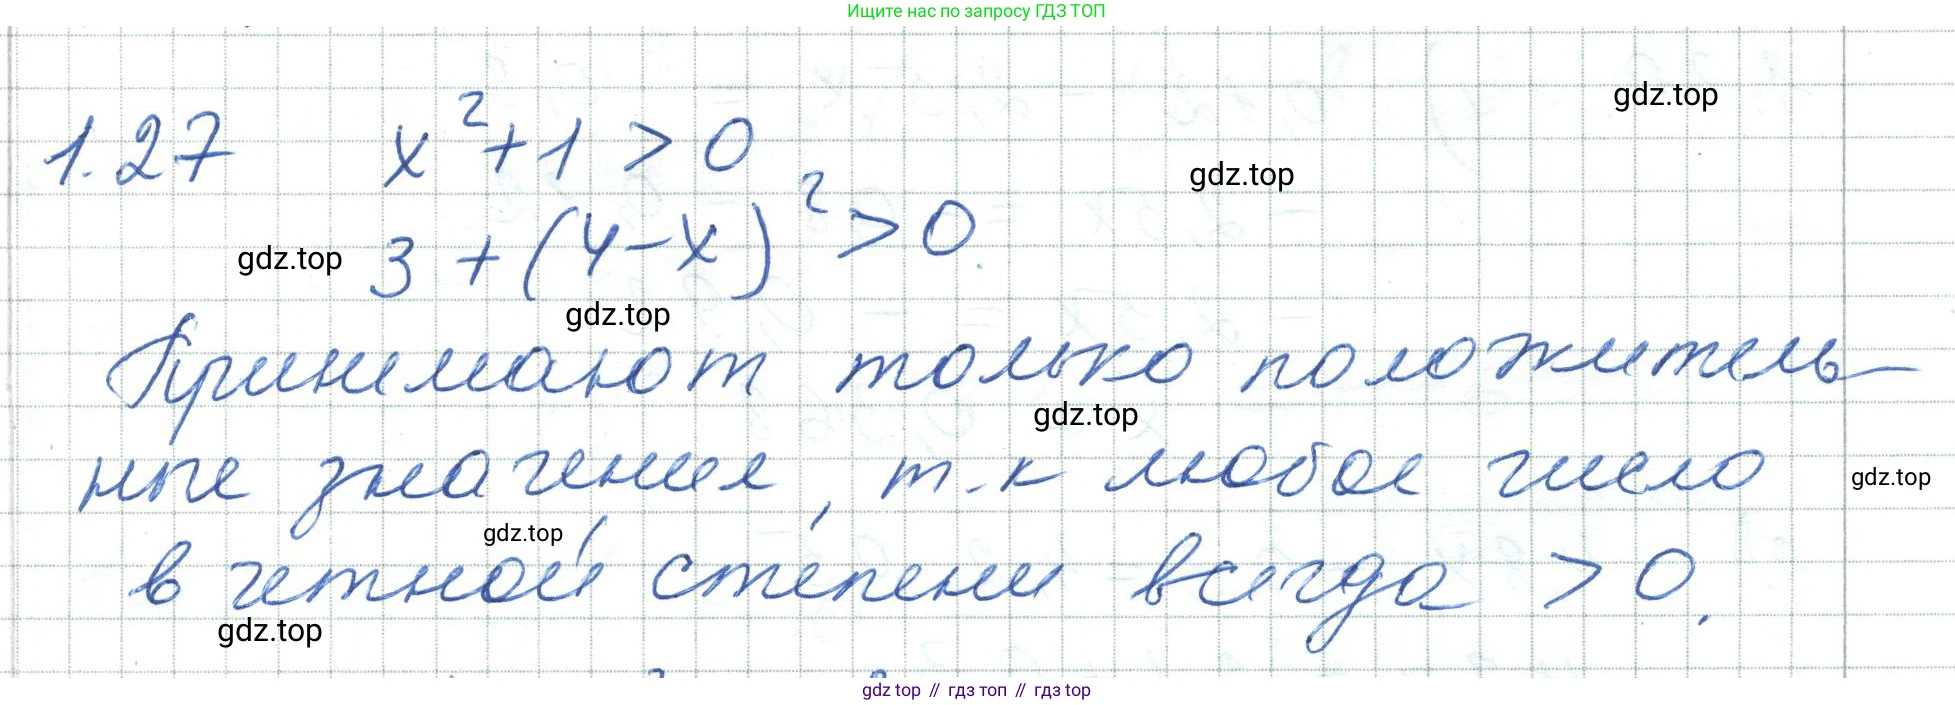 Ищите нас по запросу ГДЗ ТОП
gdz.top
1.27 x²+1 > 0
gdz.top
3 + (4-x)² > 0.
gdz.top
gdz.top
Принимают только положитель-
gdz.top
ные значения, т.к любое число
gdz.top
gdz.top
в четной степени всегда > 0,
gdz.top
gdz top // гдз топ // гдз top